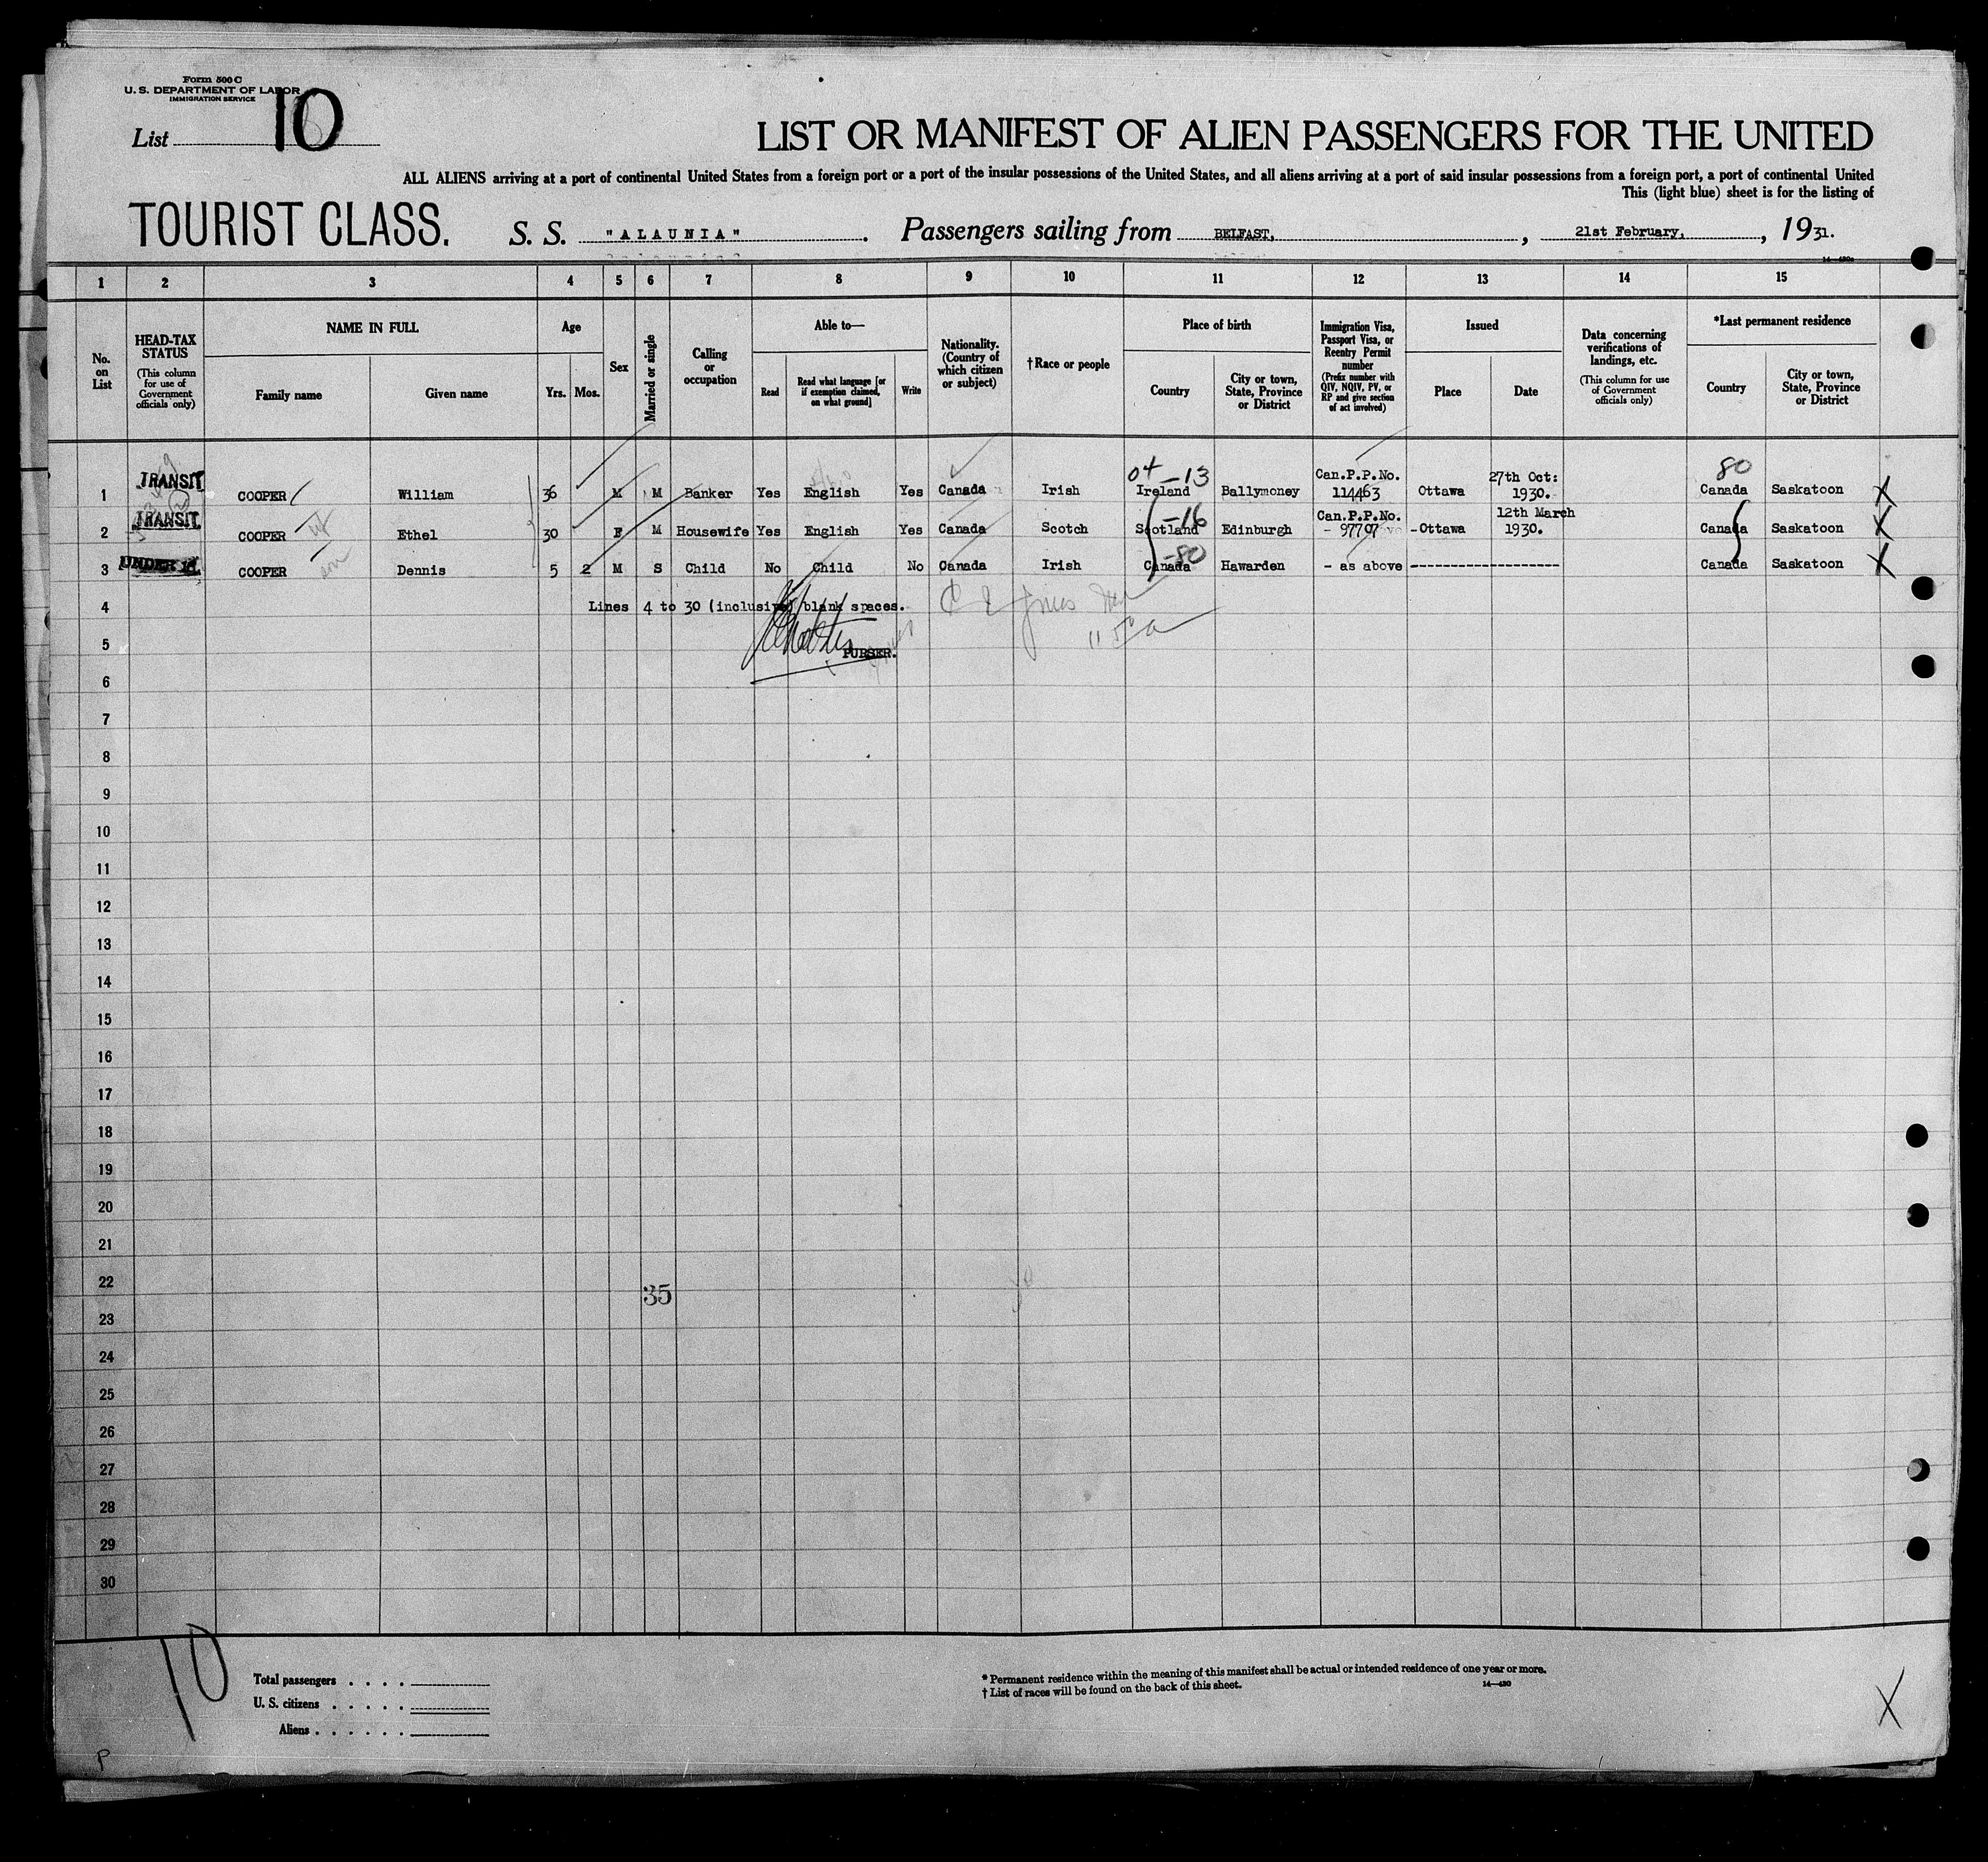 Form 500 C
U. S. DEPARTMENT OF LABOR
IMMIGRATION SERVICE
List 10
LIST OR MANIFEST OF ALIEN PASSENGERS FOR THE UNITED
ALL ALIENS arriving at a port of continental United States from a foreign port or a port of the insular possessions of the United States, and all aliens arriving at a port of said insular possessions from a foreign port, a port of continental United
This (light blue) sheet is for the listing of
TOURIST CLASS. S. S. "ALAUNIA". Passengers sailing from BELFAST, , 21st February, , 1931.
1 2 3 4 5 6 7 8 9 10 11 12 13 14 15
No. on List
HEAD-TAX STATUS
(This column for use of Government officials only)
NAME IN FULL
Family name Given name
Age
Yrs. Mos.
Sex
Married or single
Calling or occupation
Able to—
Read
Read what language [or if exemption claimed, on what ground]
Write
Nationality. (Country of which citizen or subject)
†Race or people
Place of birth
Country
City or town, State, Province or District
Immigration Visa, Passport Visa, or Reentry Permit number
(Prefix number with QIV, NQIV, PV, or RP and give section of act involved)
Issued
Place Date
Data concerning verifications of landings, etc.
(This column for use of Government officials only)
*Last permanent residence
Country
City or town, State, Province or District
04 -13 80
1 TRANSIT COOPER William 36 M M Banker Yes English Yes Canada Irish Ireland Ballymoney Can.P.P.No. 114463 Ottawa 27th Oct: 1930. Canada Saskatoon X
2 TRANSIT COOPER wf Ethel 30 F M Housewife Yes English Yes Canada Scotch Scotland -16 Edinburgh Can.P.P.No. - 97707 -Ottawa 12th March 1930. Canada Saskatoon X
3 UNDER COOPER son Dennis 5 2 M S Child No Child No Canada Irish Canada -80 Hawarden - as above ------------------- Canada Saskatoon X
4 Lines 4 to 30 (inclusive) blank spaces.
5 PURSER.
6
7
8
9
10
11
12
13
14
15
16
17
18
19
20
21
22 35
23
24
25
26
27
28
29
30
10
Total passengers . . . .
U. S. citizens . . . . .
Aliens . . . . . .
* Permanent residence within the meaning of this manifest shall be actual or intended residence of one year or more.
† List of races will be found on the back of this sheet. 14—430
X
P